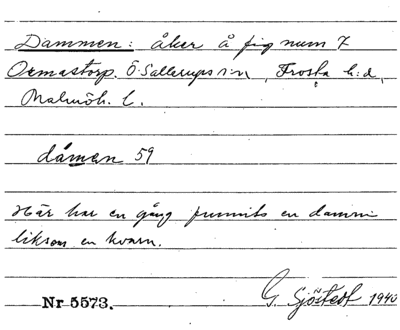 Dammen: åker å fig num 7
Ormastorp. Ö. Sallerups s:n, Frosta h:d,
Malmöh. l.
dámen 59
Här har en gång funnits en damm
liksom en kvarn.
Nr 5573.
G. Sjöstedt 1940